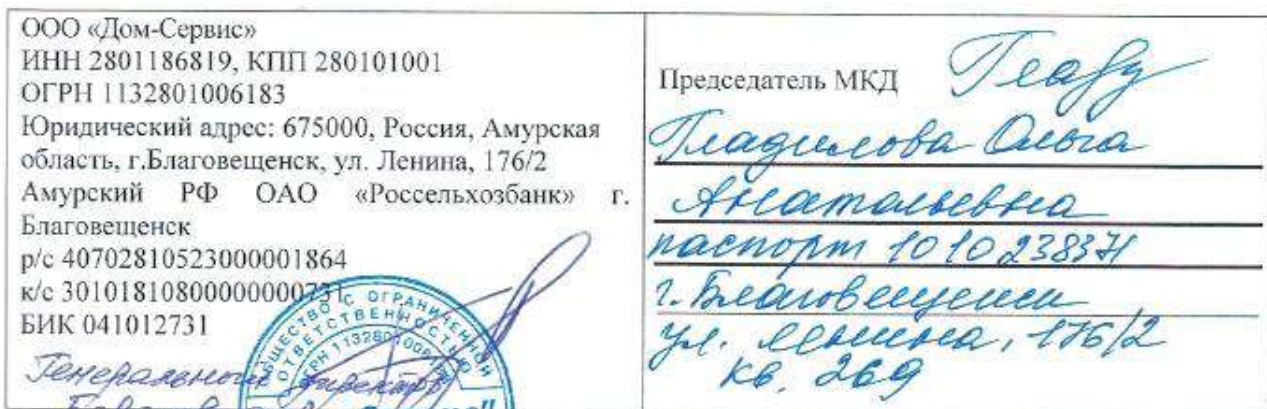 ООО «Дом-Сервис»
ИНН 2801186819, КПП 280101001
ОГРН 1132801006183
Юридический адрес: 675000, Россия, Амурская
область, г.Благовещенск, ул. Ленина, 176/2
Амурский РФ ОАО «Россельхозбанк» г.
Благовещенск
р/с 40702810523000001864
к/с 30101810800000000731
БИК 041012731
Генеральный директор
ОБЩЕСТВО С ОГРАНИЧЕННОЙ
ОТВЕТСТВЕННОСТЬЮ
Председатель МКД
Гладилова Ольга
Анатольевна
паспорт 1010
г. Благовещенск
ул. Ленина, 176/2
кв. 269